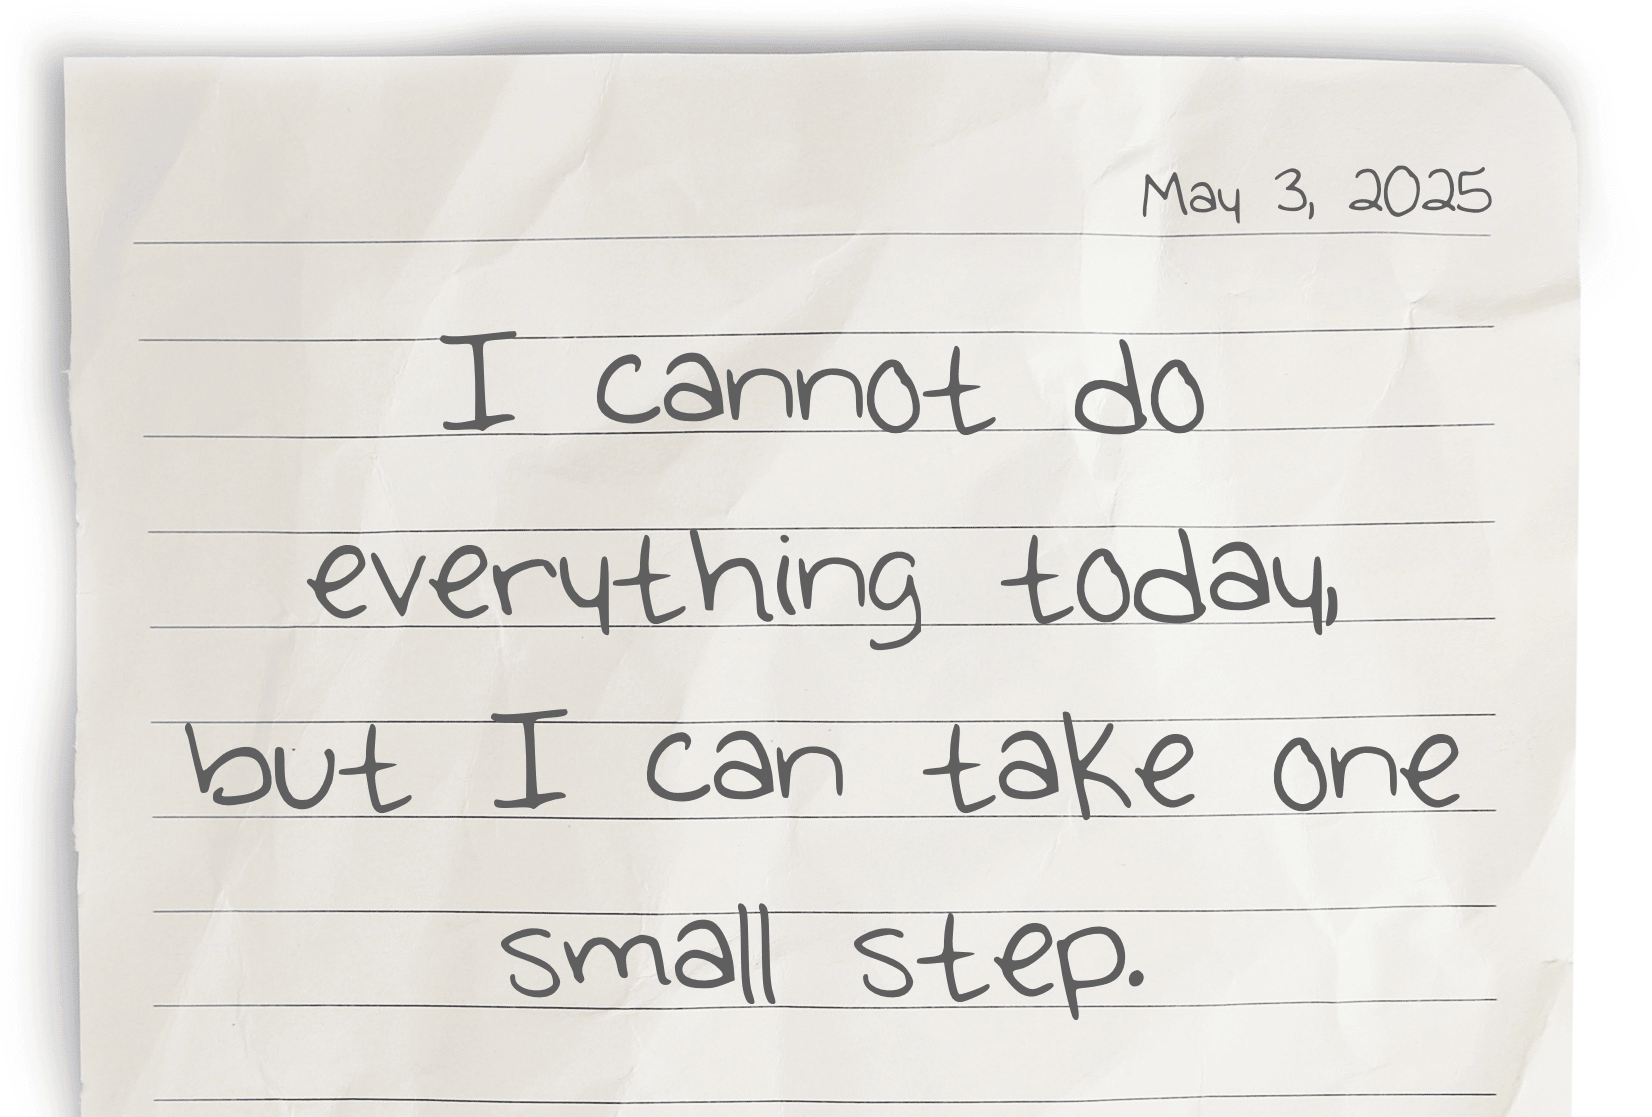 May 3, 2025
I cannot do
everything today,
but I can take one
small step.